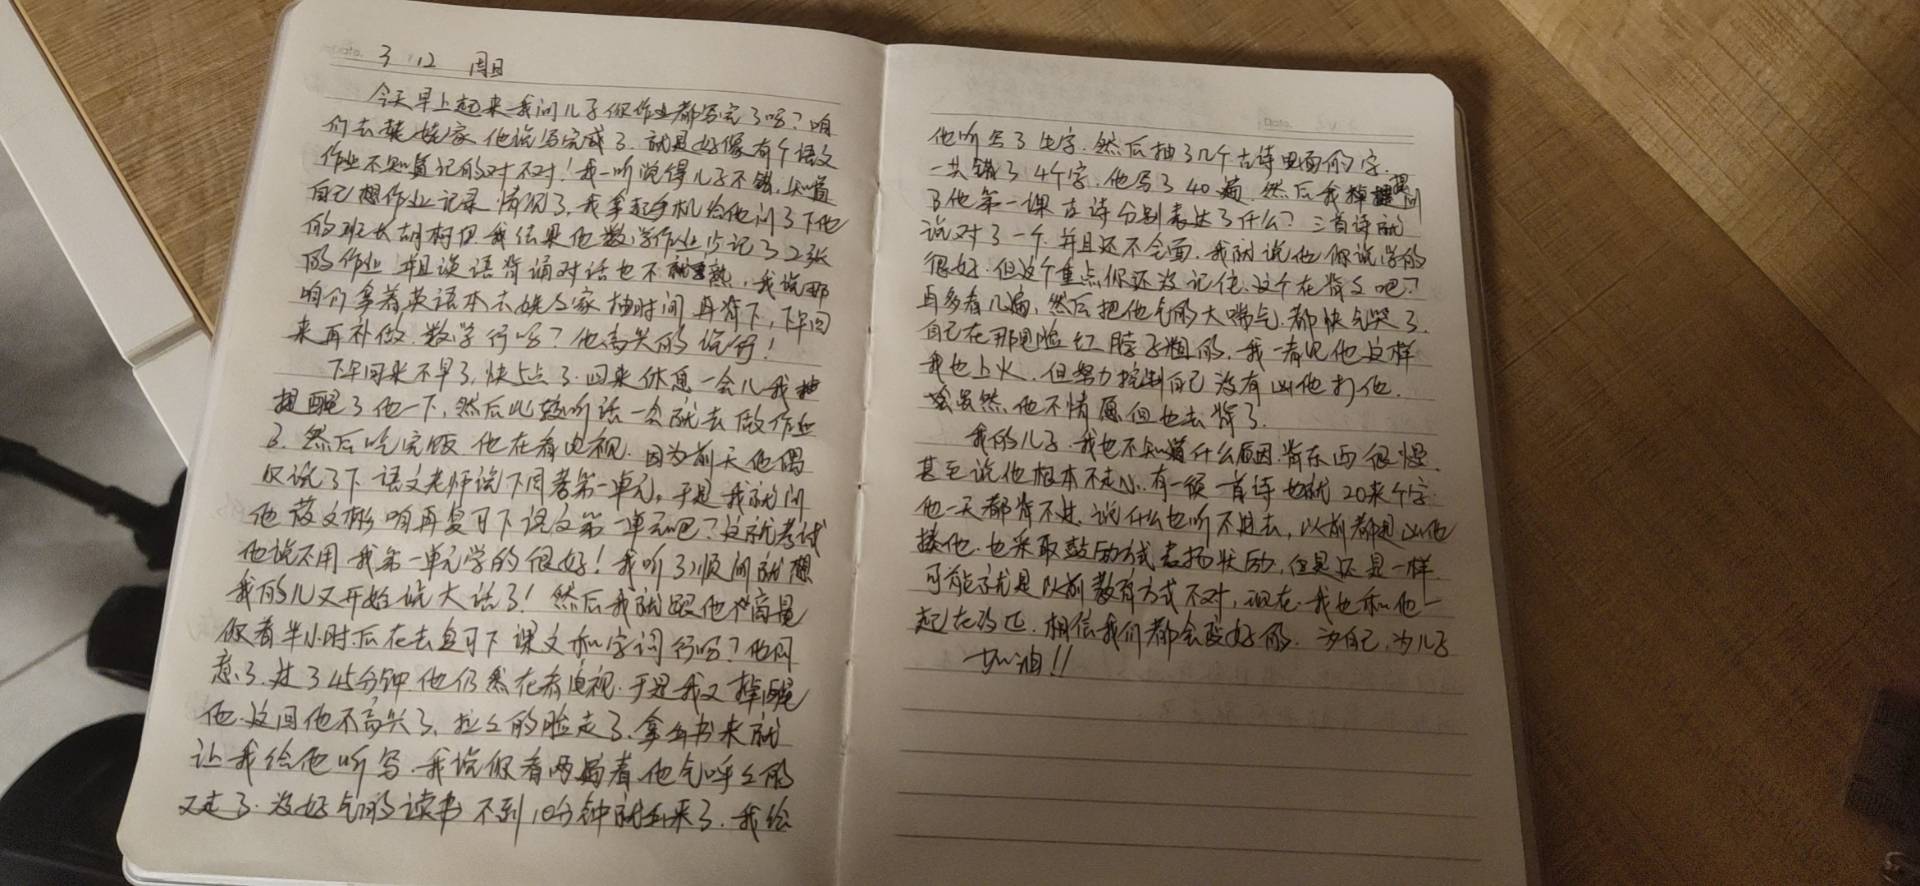 3 12 周日
今天早上起来我问儿子你作业都写完了吗?咱
们去姥姥家他说写完成了.就是好像有个语文
作业不知道记的对不对!我一听觉得儿子不错,知道
自己想作业记录情况了,我拿起手机给他问了下他
的班长 结果他数学作业少记了2张
的作业 并且说语背诵对话也不熟,我说那
咱们拿着英语本去姥姥家抽时间再背下,下午回
来再补做.数学行吗?他高兴的说好!
下午回来不早了,快5点了.回来休息一会儿我
提醒了他一下,然后比较听话一会就去做作业
了.然后吃完饭他在看电视.因为前天他偶
仅说了下语文老师说下周考第一单元,于是我就问
他 咱再复习下语文第一单元吧?这就考试
他说不用我第一单元学的很好!我听了顺间就想
我的儿又开始说大话了!然后我就跟他商量
你看半小时后在去复习下课文和字词行吗?他同
意了.过了45分钟他仍然在看电视.于是我又提醒
他.这回他不高兴了,拉々的脸走了,拿出书来就
让我给他听写.我说你看两遍看他气呼々的
又走了.没好气的读书不到10分钟就出来了.我给
Date
他听写了生字.然后抽了几个古诗里面的字.
一共错了4个字,他写了40遍.然后我提问
了他第一课古诗分别表达了什么?三首诗就
说对了一个.并且还不全面.我就说他你说学的
很好.但这个重点你还没记住.这个在背々吧?
再多看几遍,然后把他气的大喘气.都快气哭了.
自己在那里脸红脖子粗的,我一看见他这样
我也上火.但努力控制自己没有凶他打他.
虽然他不情愿但也去背了.
我的儿子.我也不知道什么原因.背东西很慢.
甚至说他根本不走心.有一顿一首诗也就20来个字
他一天都背不进.说什么也听不进去,以前都是凶他
揍他.也采取鼓励方式表扬状励,但是还是一样.
可能就是以前教育方式不对,现在.我也和他一
起在学习.相信我们都会变好的.为自己,为儿子
加油!!